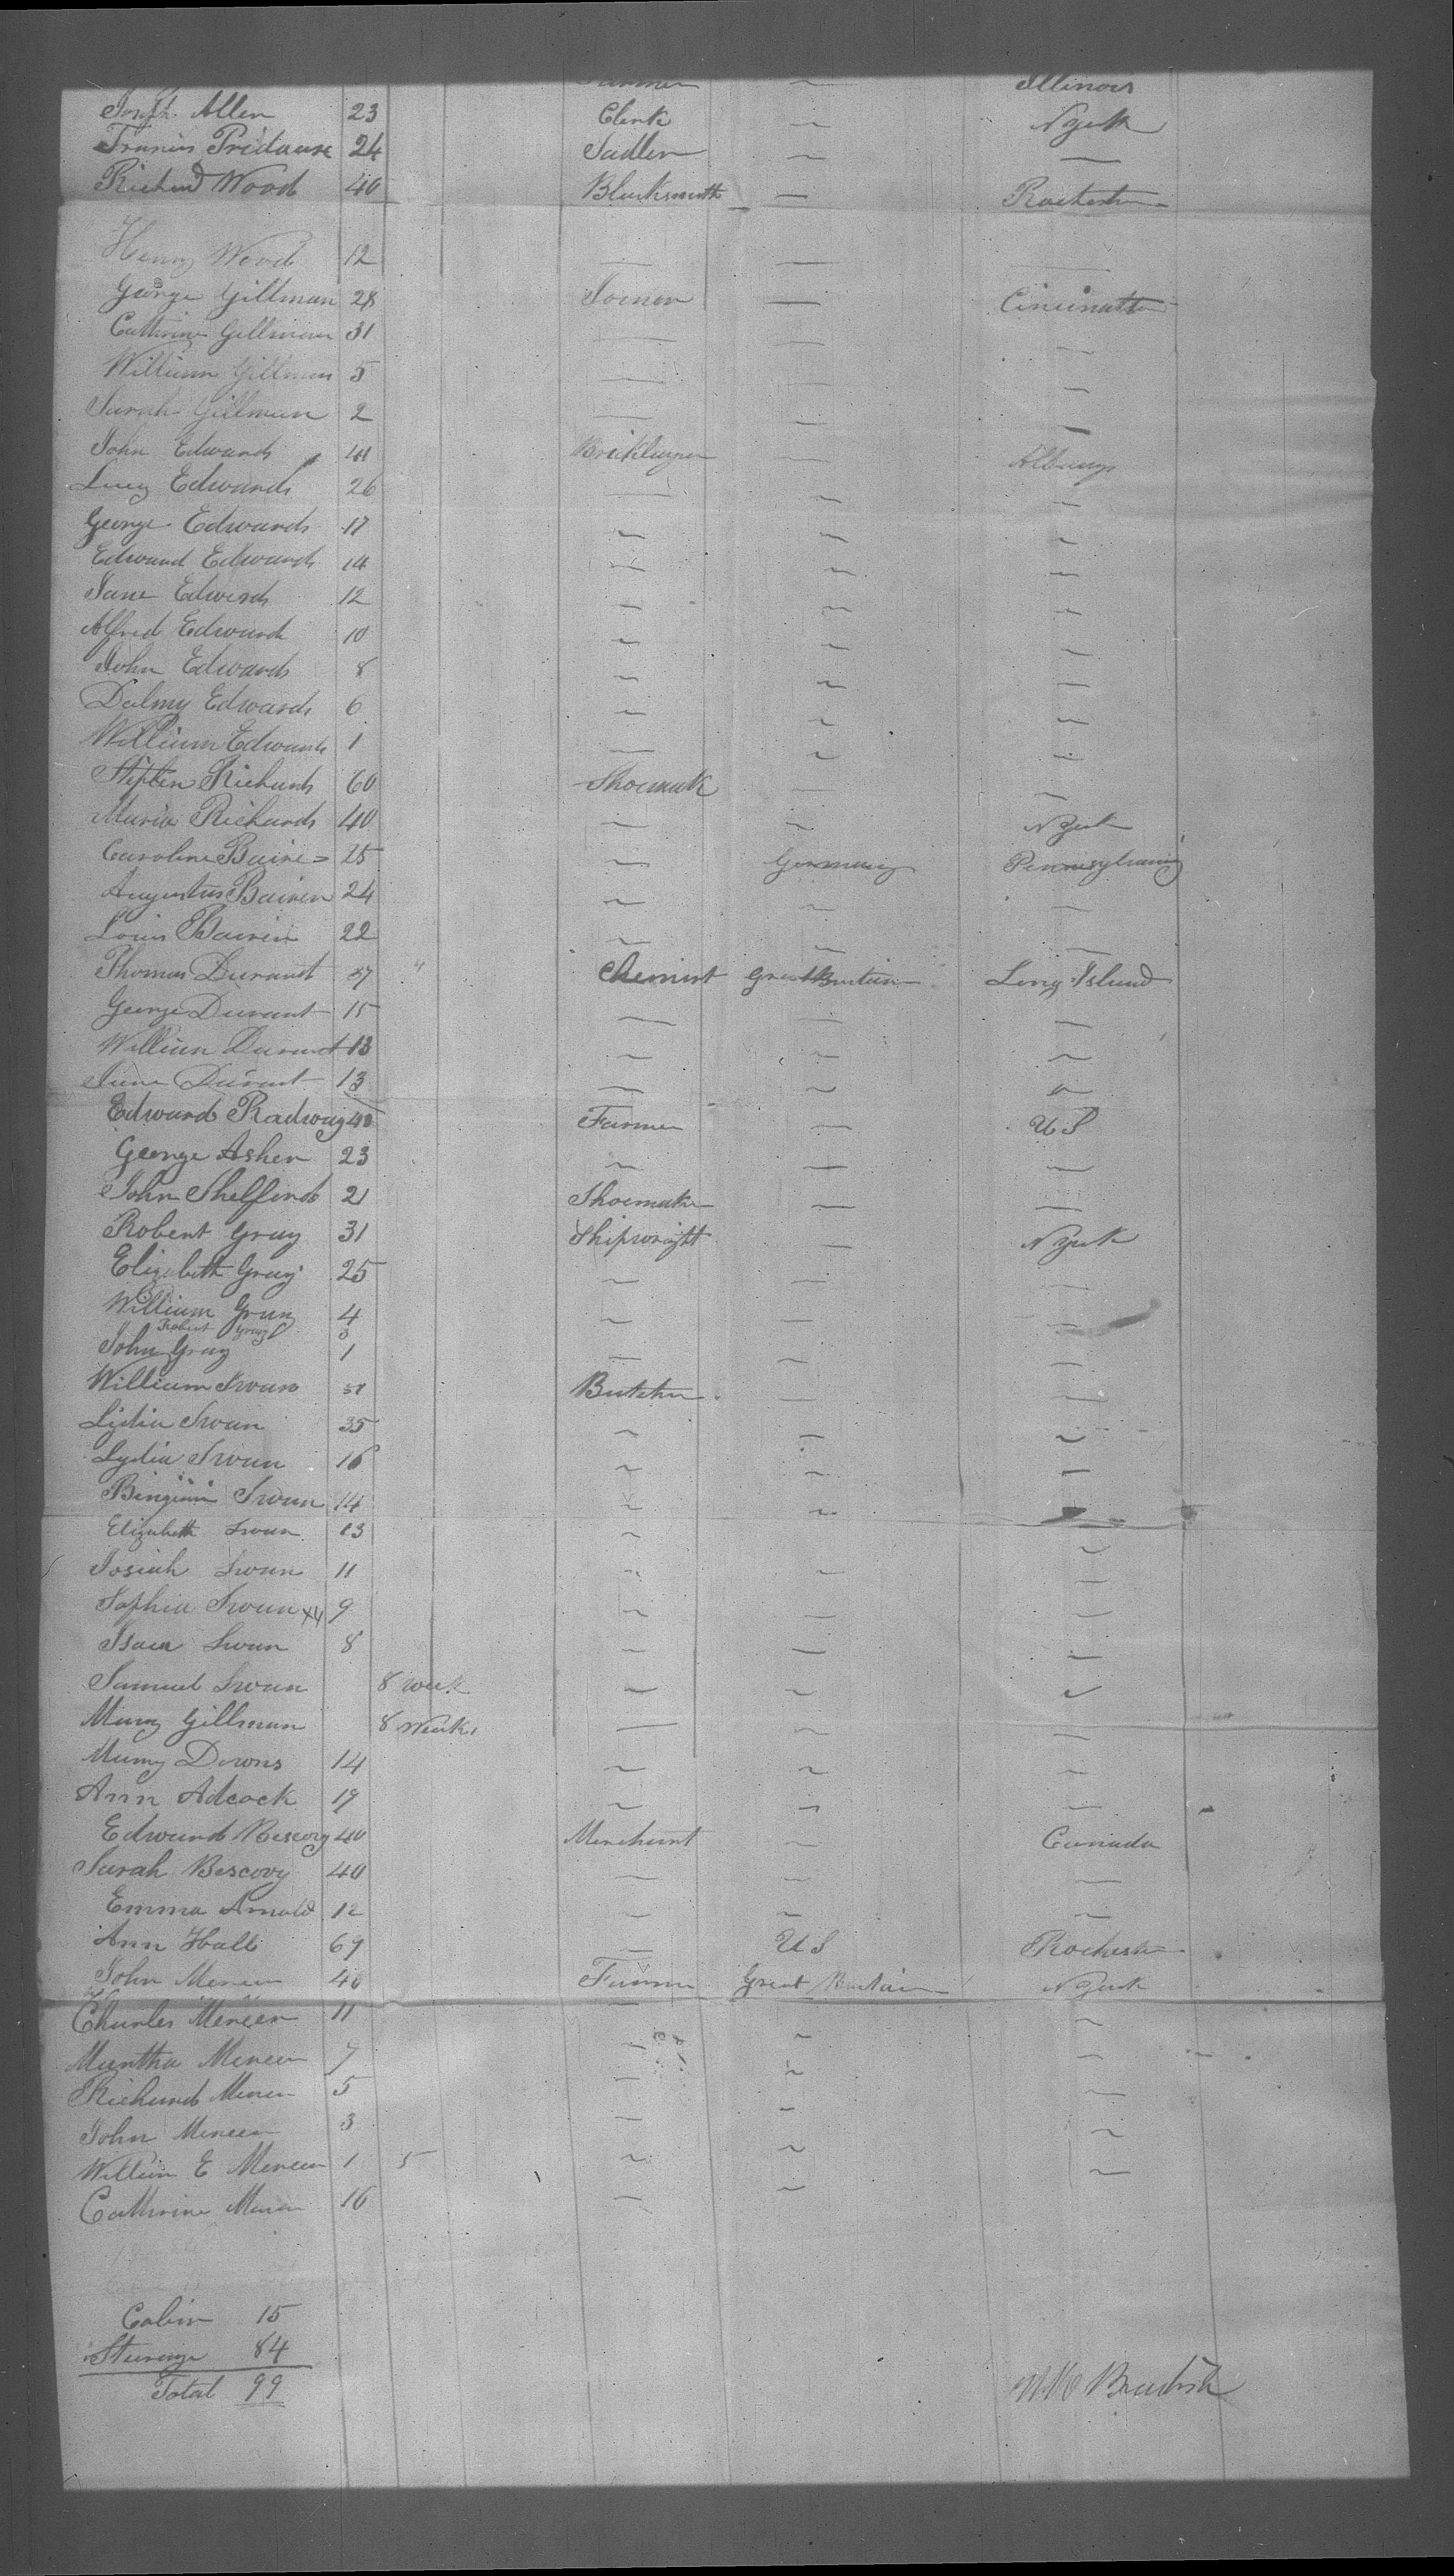 Illinois
Joseph Allen 23 Clerk — N York
Francis Pridaux 24 Sadler — —
Richard Wood 40 Blacksmith — Rochester
Henry Wood 12 — — —
George Gillman 28 — Cincinatti
Cathrine Gillman 31 — — —
William Gillman 5 — — —
Sarah Gillman 2 — — —
John Edwards 41 Bricklayer — Albany
Lucy Edwards 26 — — —
George Edwards 17 — — —
Edward Edwards 14 — — —
Jane Edwards 12 — — —
Alfred Edwards 10 — — —
John Edwards 8 — — —
Dalmy Edwards 6 — — —
William Edwards 1 — — —
Stephen Richards 60 Shoemak — —
Maria Richards 40 — — N York
Caroline 25 — Germany Pennsylvania
Augustus Bairen 24 — — —
Louis Bairen 22 — — —
Thomas Durant 37 " Chemist Great Britain Long Island
George Durant 15 — — —
William Durant 13 — — —
Jane Durant 13 — — —
Edward Radway 40 Farmer — U S
George Asher 23 — — —
John Shelford 21 Shoemaker — —
Robert Gray 31 Shipwright — N York
Elizabeth Gray 25 — — —
William Gray 4 — — —
Robert Gray 3
John Gray 1 — — —
William Swan Butcher — —
Lydia Swan 35 — — —
Lydia Swan 16 — — —
Swan 14 — — —
Elizabeth Swan 13 — —
Josiah Swan 11 — — —
Sophia Swan 9 — — —
Isaac Swan 8 — — —
Samuel Swan 8 week — — —
Mary Gillman 8 Weeks — — —
Mary Downs 14 — — —
Ann Adcock 19 — — —
Edward Bescoby 40 Merchant — Canada
Sarah Bescovy 40 — — —
Emma Arnold 12 — — —
Ann Hall 69 — U S Rochester
John Mercer 40 Farmer Great Britain N York
Charles Mercer 11 — — —
Martha Mercer 7 — — —
Richard Mercer 5 — — —
John Mercer 3 — — —
William E Mercer 1 5 — — —
Cathrine Mercer 16 — —
Cabin 15
Steerage 84
Total 99